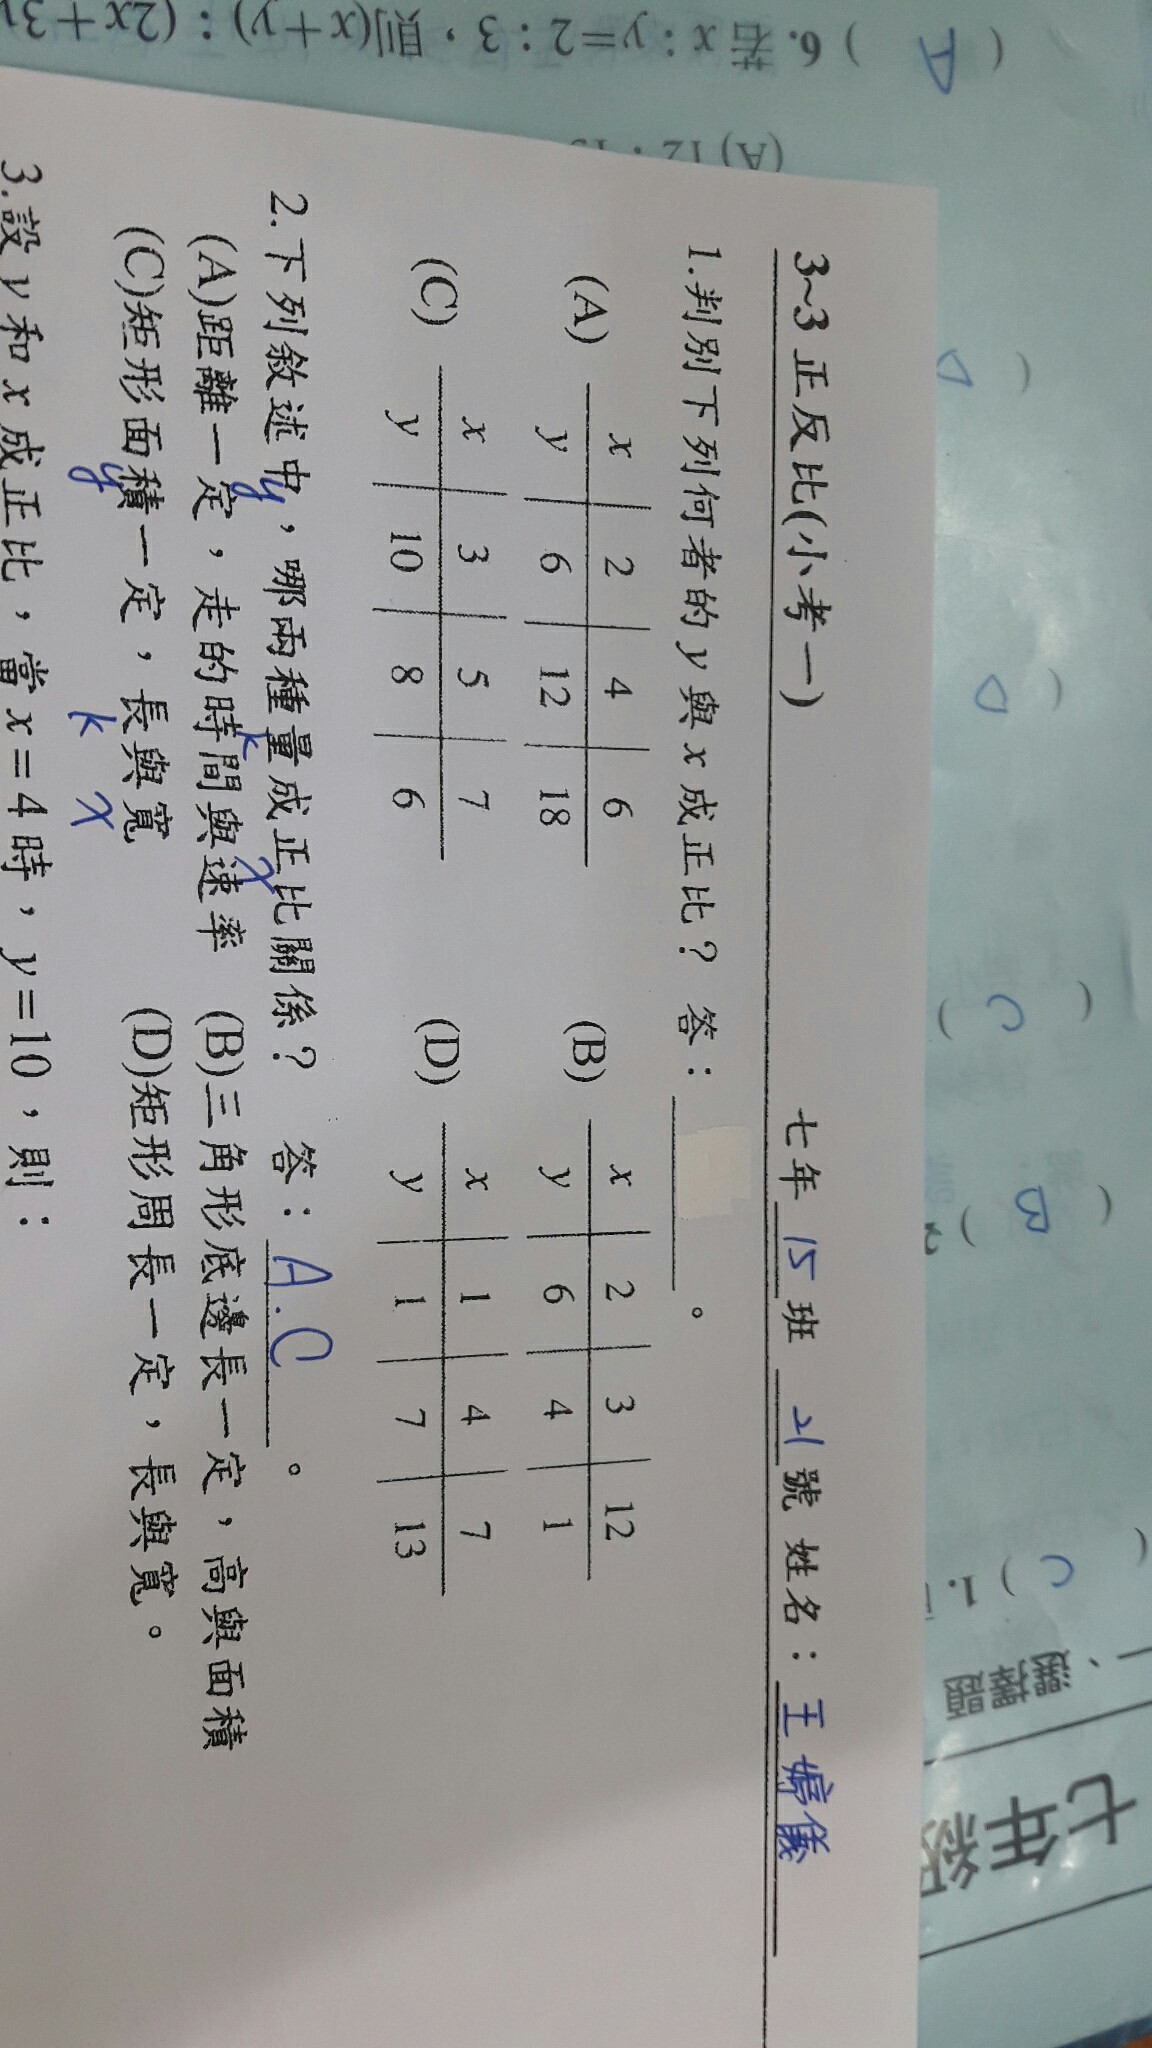 3~3 正反比(小考一) 七年 15 班 21 號 姓名：王婷儀
1.判別下列何者的 y 與 x 成正比？ 答：　　　。
(A) x 2 4 6 (B) x 2 3 12
y 6 12 18 y 6 4 1
(C) x 3 5 7 (D) x 1 4 7
y 10 8 6 y 1 7 13
2.下列敘述中，哪兩種量成正比關係？ 答：A.C。
y k x
(A)距離一定，走的時間與速率 (B)三角形底邊長一定，高與面積
(C)矩形面積一定，長與寬 (D)矩形周長一定，長與寬。
y k x
3.設 y 和 x 成正比，當 x=4 時，y=10，則：
七年級
一、選擇題
( C ) 1.
( B )
( C )
( D
( D
( A ) 6. 若 x：y=2：3，則(x+y)：(2x+3y
(A) 12：1